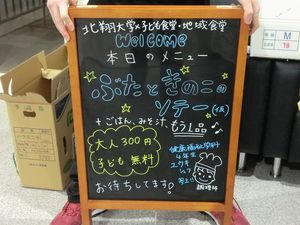 北翔大学×子ども食堂・地域食堂
Welcome
本日のメニュー
ぶたときのこの
ソテー(仮)
+ごはん、みそ汁、もう1品♪
大人300円
子ども無料
健康福祉学科
4年生
お待ちしてます!
調理師
M